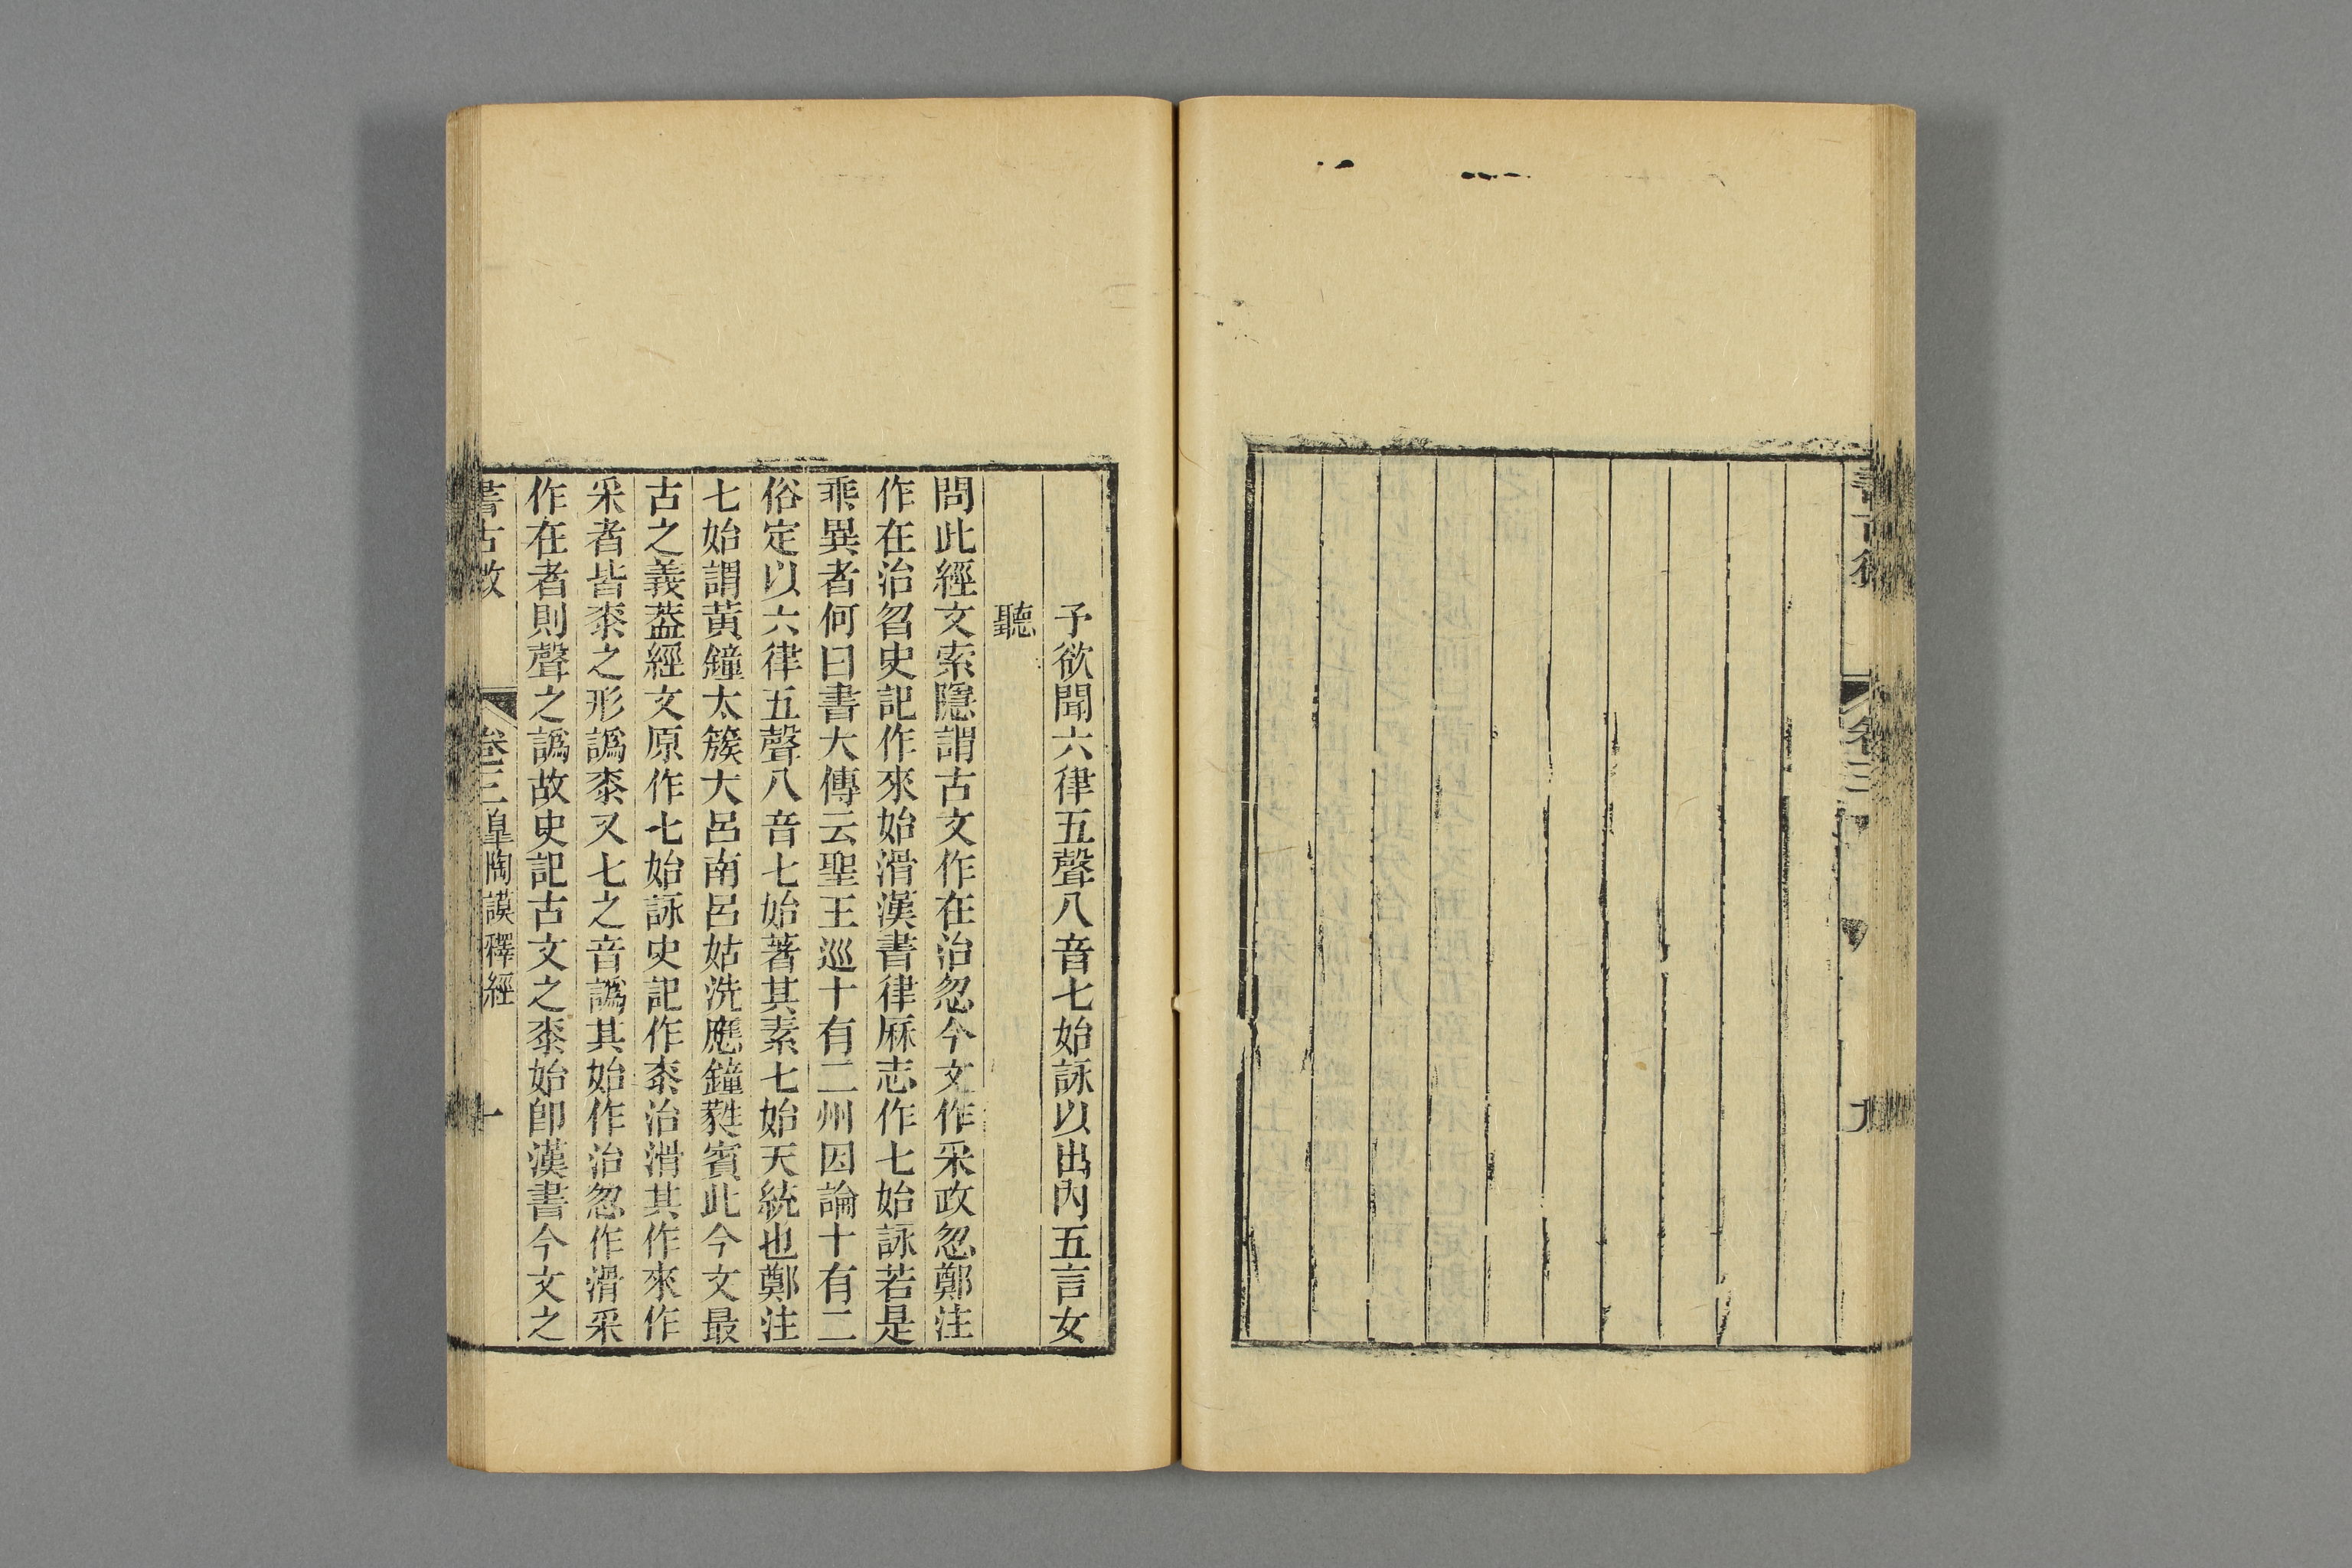 卷三
九
予欲聞六律五聲八音七始詠以出內五言女
聽
問此經文索隱謂古文作在治忽今文作采政忽鄭注
作在治曶史記作來始滑漢書律厤志作七始詠若是
乖異者何曰書大傳云聖王巡十有二州因論十有二
俗定以六律五聲八音七始著其素七始天統也鄭注
七始謂黃鐘太簇大呂南呂姑洗應鐘蕤賓此今文最
古之義葢經文原作七始詠史記作桼治滑其作來作
采者皆桼之形譌桼又七之音譌其始作治忽作滑采
作在者則聲之譌故史記古文之桼始卽漢書今文之
書古微
卷三皐陶謨釋經
十